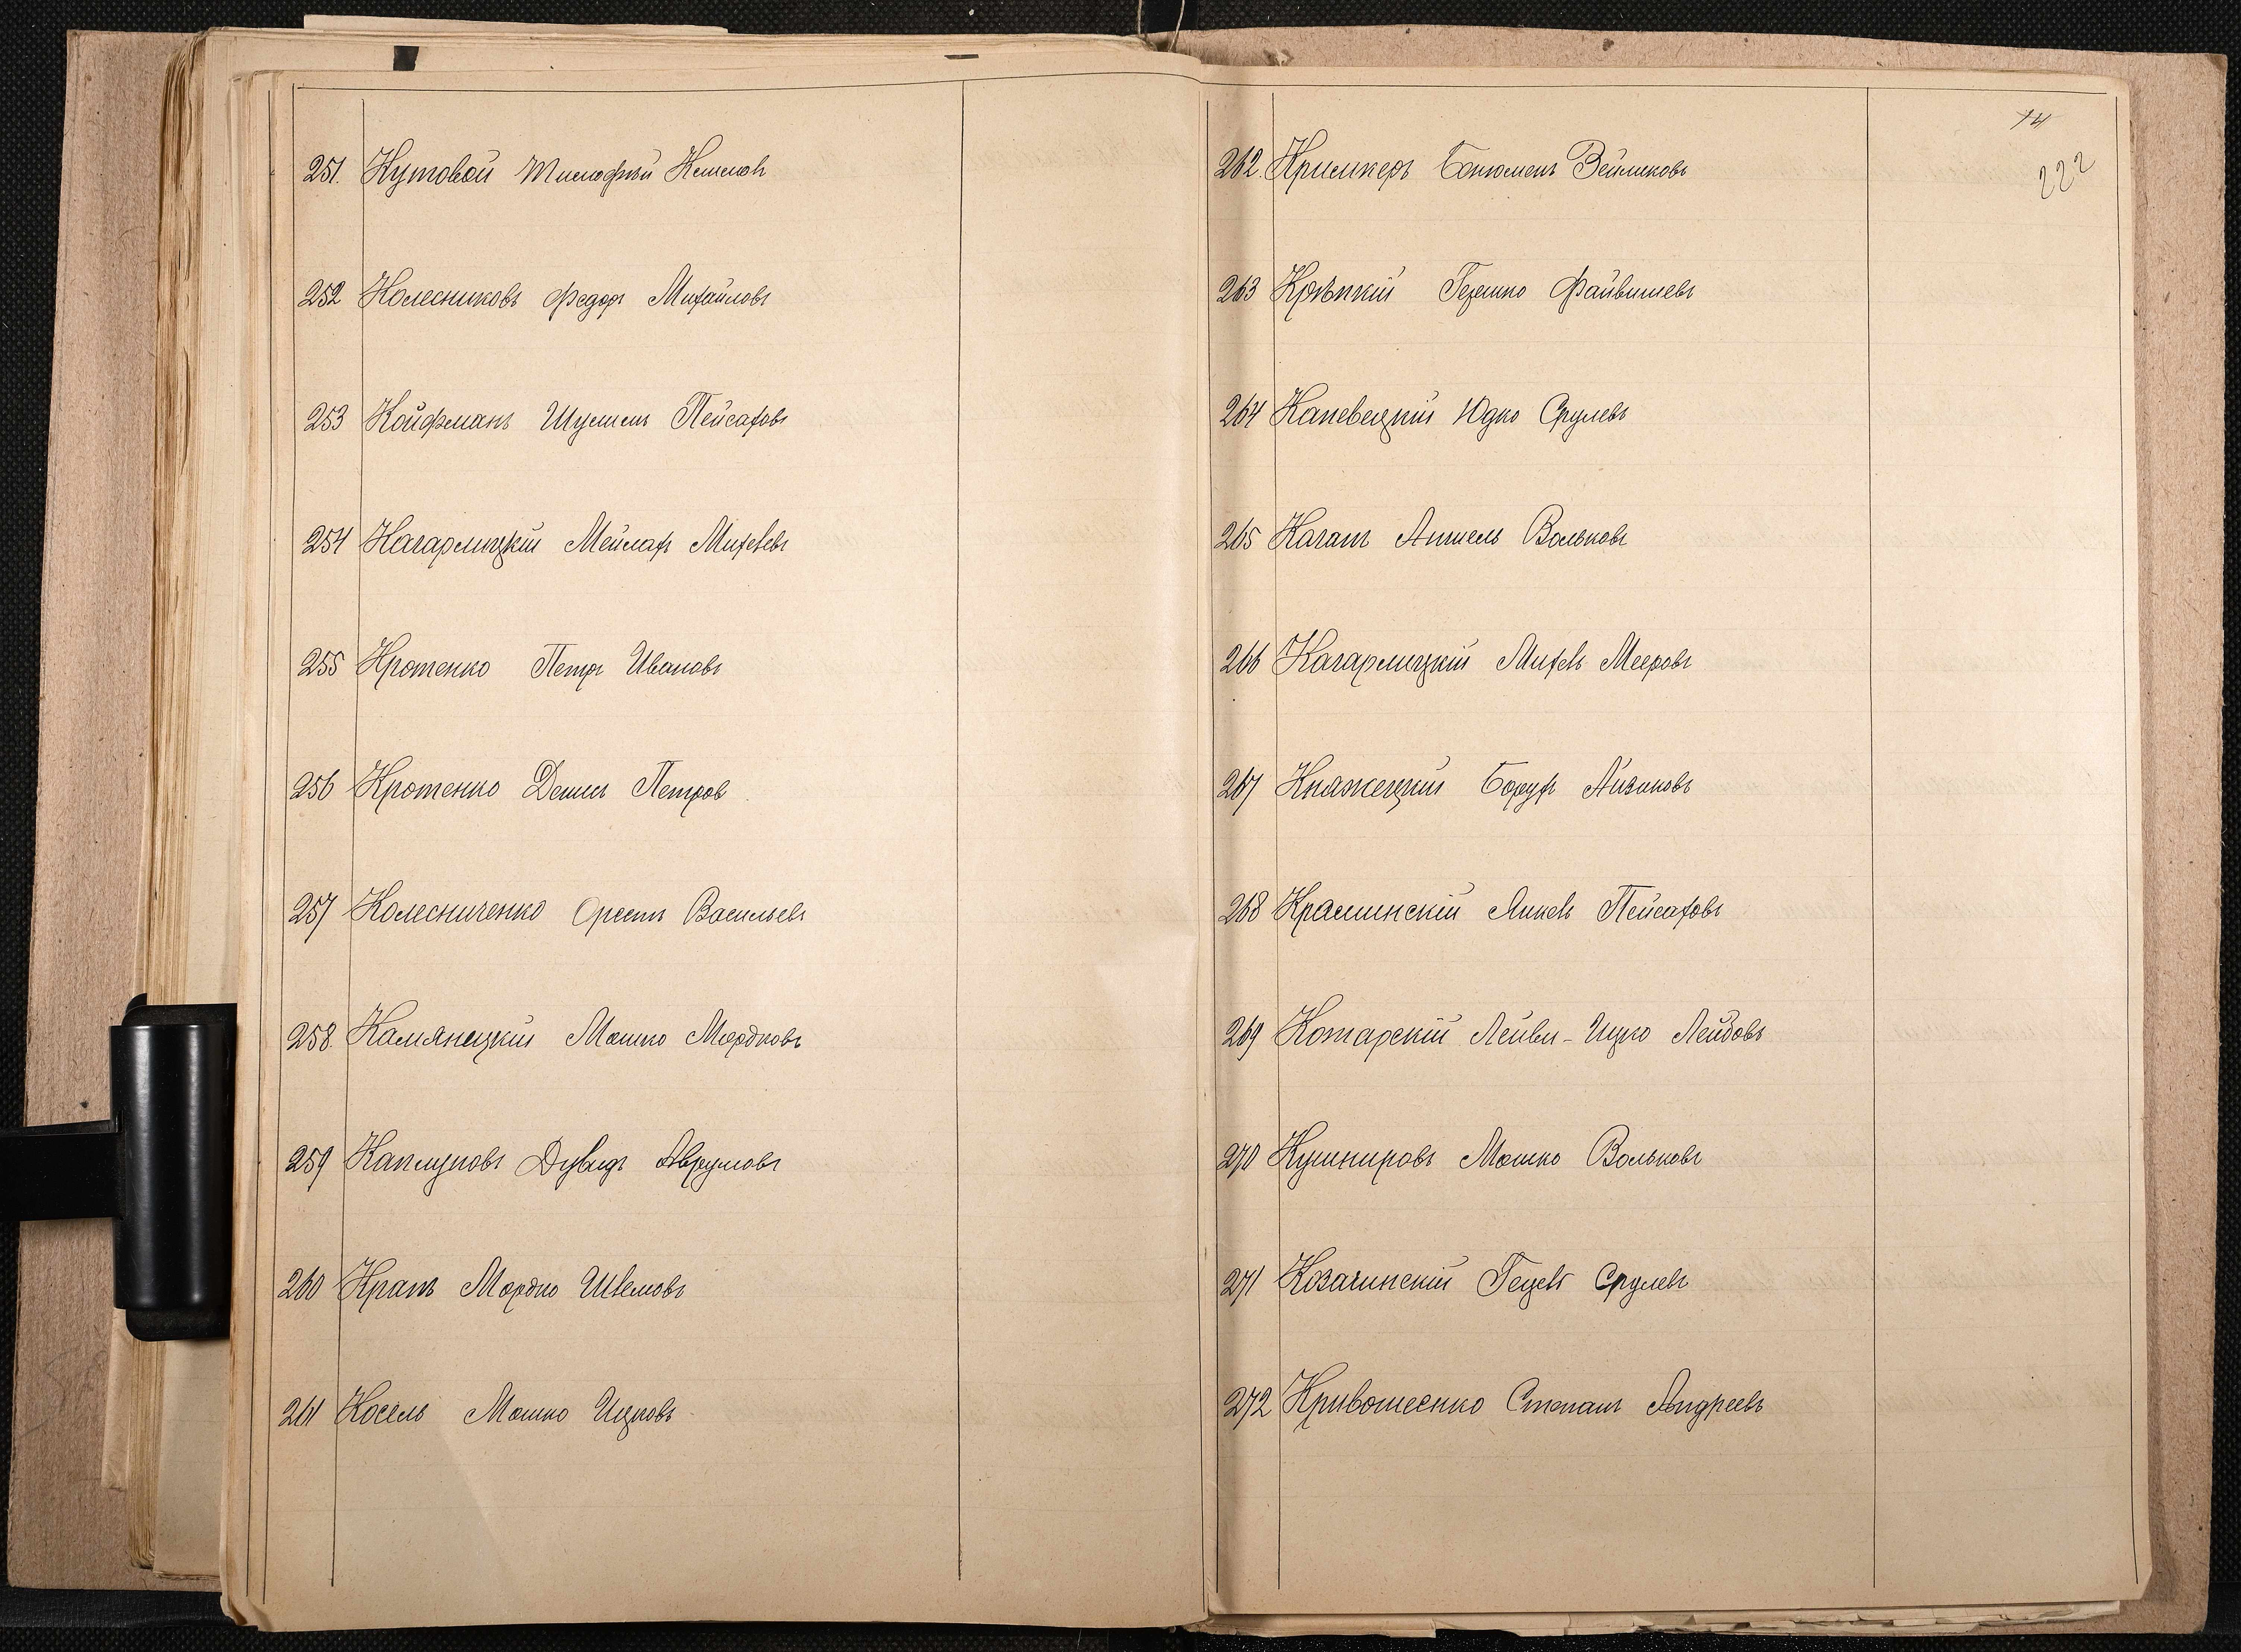 251. Кутовой Тимофей
252 Колесниковъ Федоръ Михайловъ
253 Койфманъ Шулимъ Пейсаховъ
254 Кагарлицкій Мейлахъ Михелевъ
255 Кротенко Петръ Ивановъ
256 Кротенко Демидъ Петров
257 Колесниченко Орестъ Васильевъ
258. Камянецкій Мошко Мордковъ
259 Каплуновъ Дувидъ Аврумовъ
260 Крапъ Мордко
261 Косель Мошко Ицковъ
14
222
262. Кримкеръ Бенюменъ Зейликовъ
263 Крѣпкій Гершко Файвишевъ
264 Каневецкій Юдко Срулевъ
265 Каганъ Аншель Вольковъ
266 Кагарлицкій Михель Мееровъ
267 Княжецкій Борухъ Айзиковъ
268 Краминскій Янкель Пейсаховъ
269 Котарскій Лейви-Ицко Лейбовъ
270 Кушнировъ Мошко Вольковъ
271 Козачинскій Гецель Срулевъ
272 Кривошеенко Степанъ Андреевъ